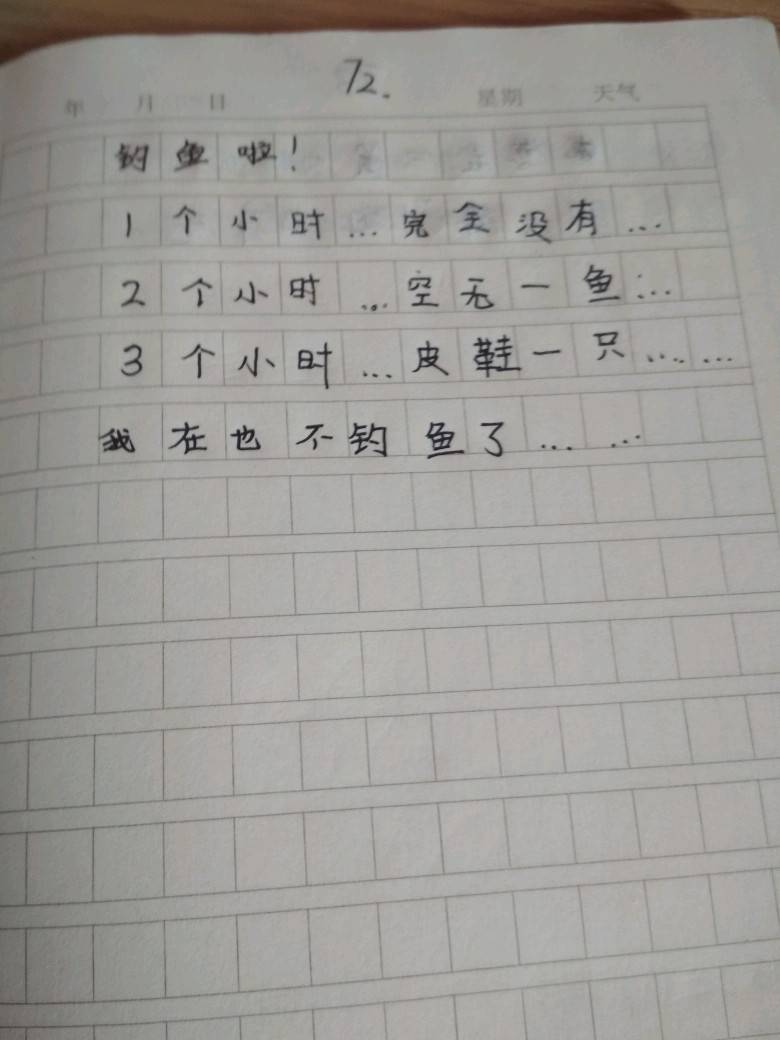 72.
年 月 日 星期 天气
钓鱼啦！
1个小时…完全没有…
2个小时…空无一鱼…
3个小时…皮鞋一只……
我在也不钓鱼了……